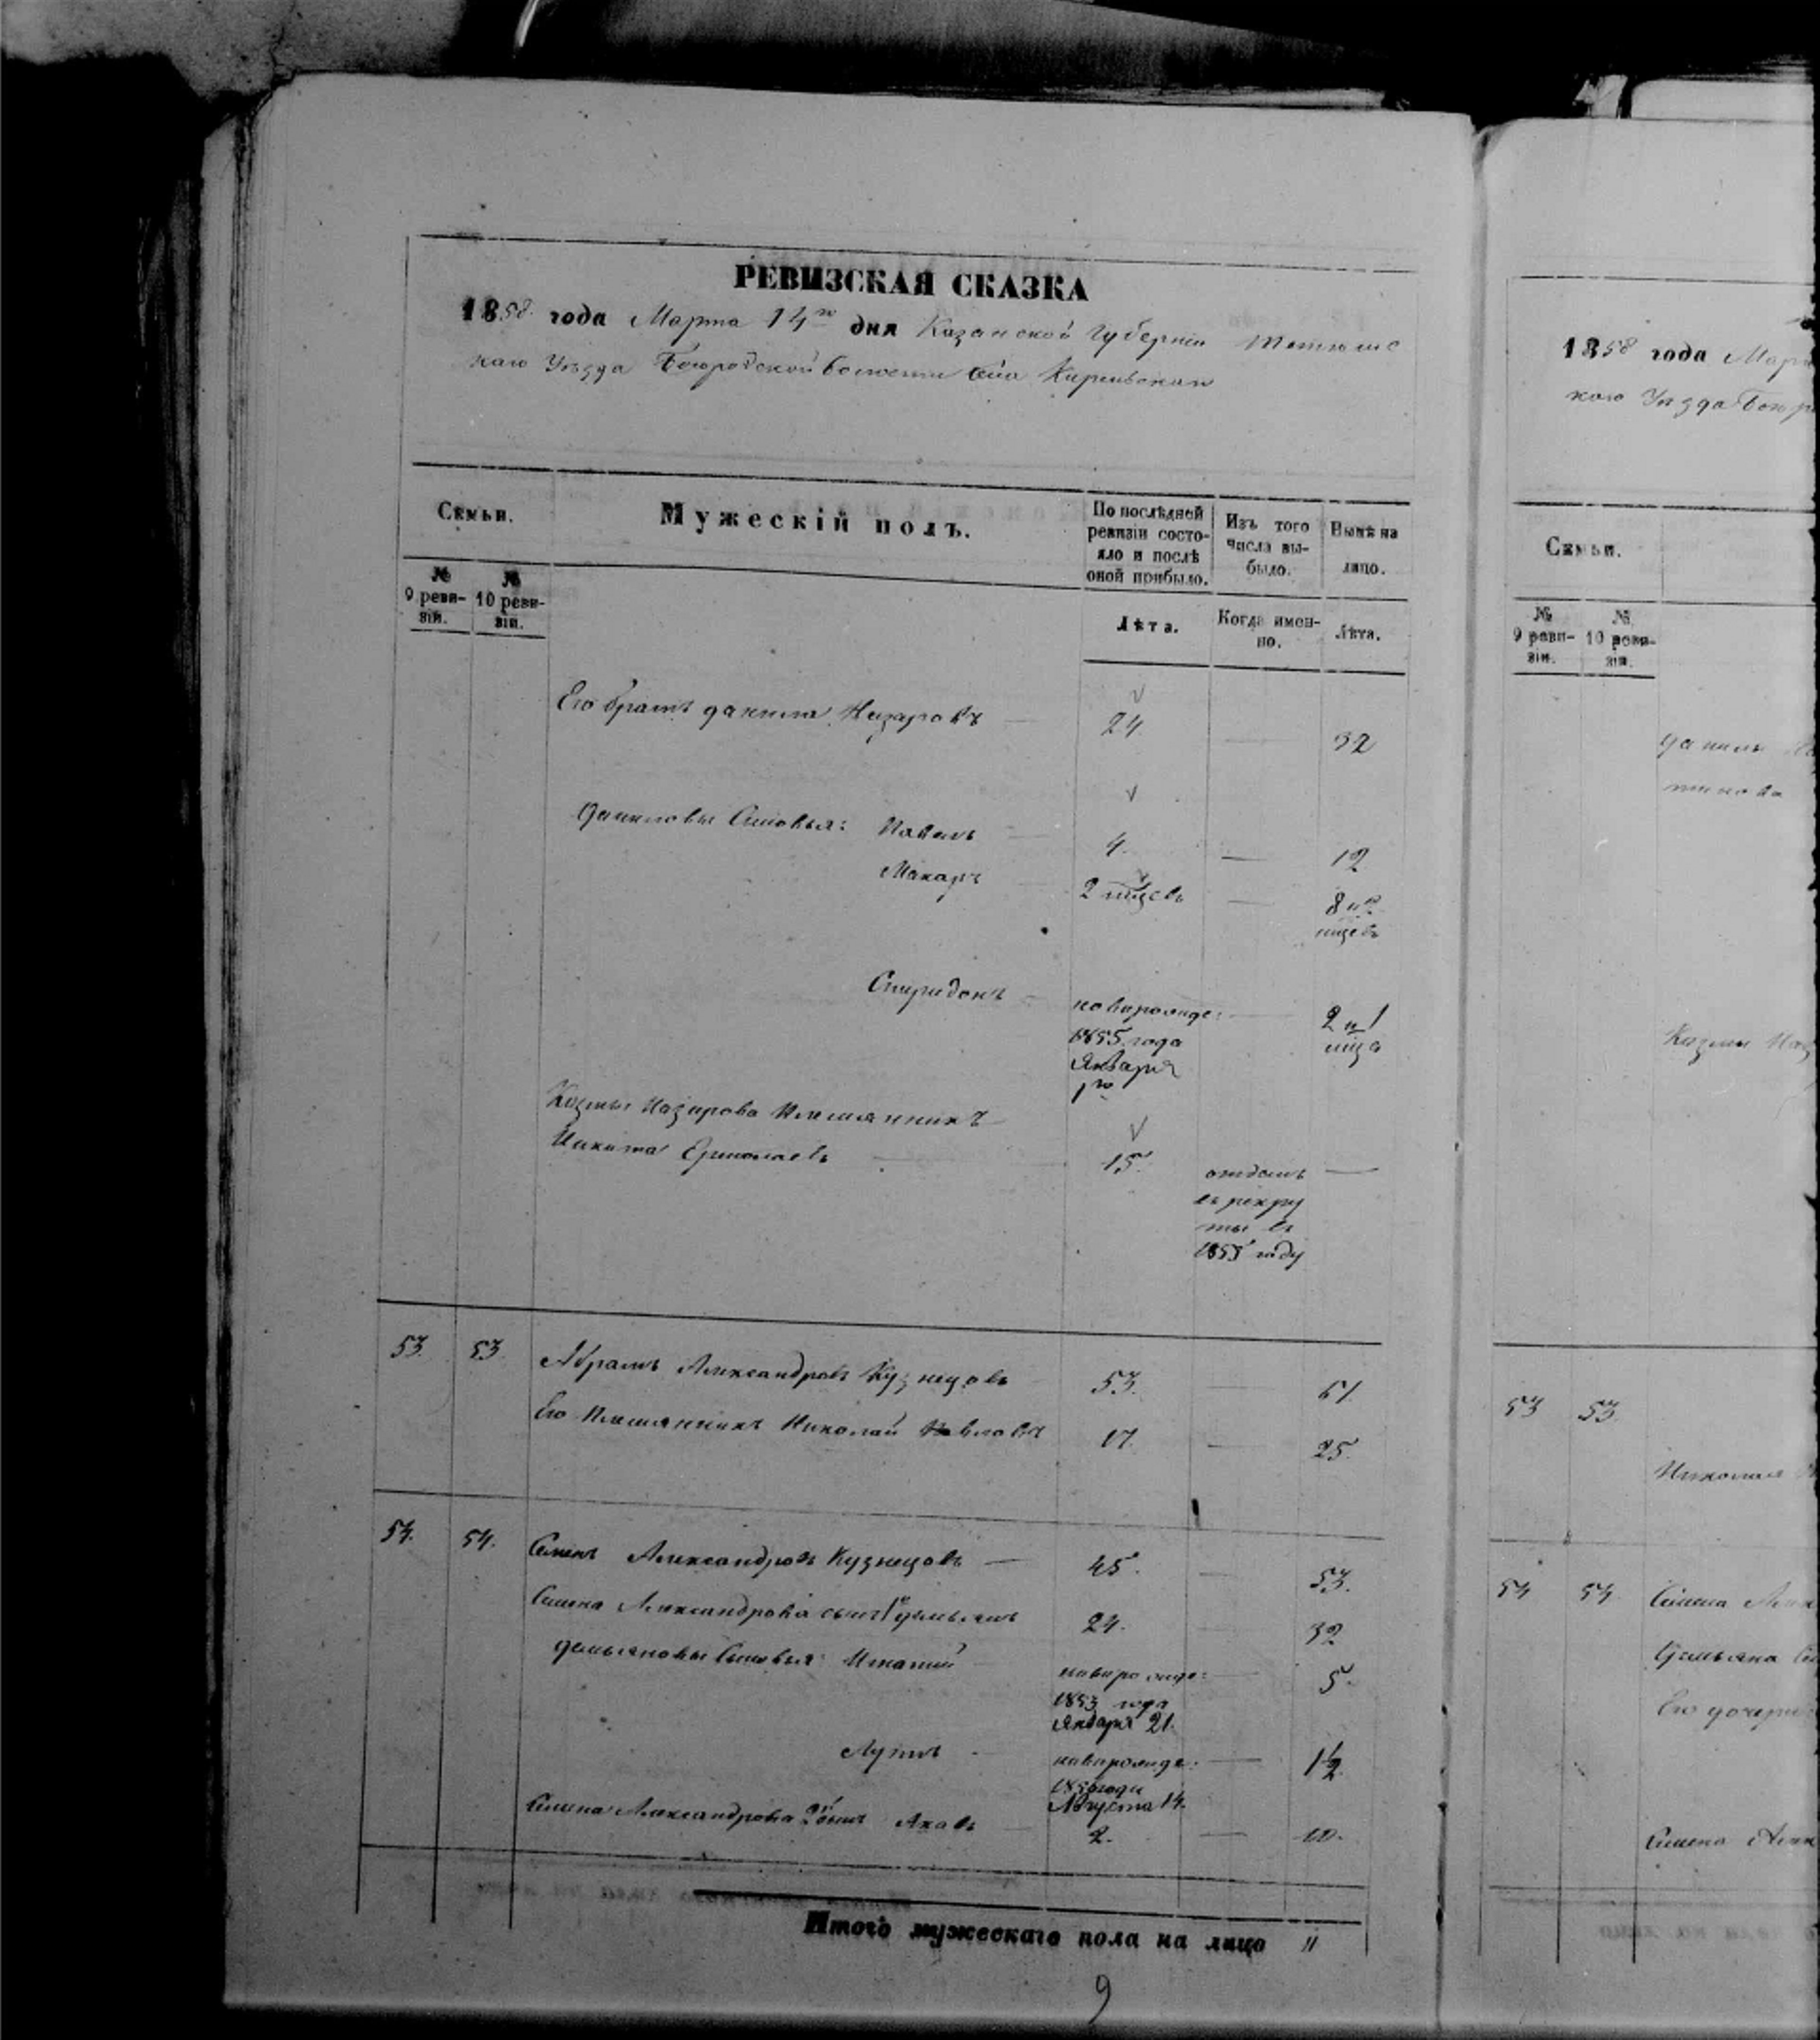 РЕВИЗСКАЯ СКАЗКА
1858 года Марта 14го дня Казанской Губерніи Тетюшс
каго Уѣзда Богородской волости села
Семьи.
Мужескій полъ.
По послѣдней ревизіи состо-
яло и послѣ
оной прибыло.
Изъ того
числа вы-
было.
Нынѣ на
лицо.
№
9 реви-
зіи.
№
10 реви-
зіи.
Лѣта.
Когда имен-
но.
Лѣта.
Его братъ Данила Назаровъ — 24 — 32
Даниловы Сыновья: Павелъ — 4. — 12
Макаръ — 2 мѣцсвъ — 8 и 2
мцевъ
Спиридонъ — новорожде: — 2 и 1
1855 года мца
Января
1го
Козмы Назарова Племянникъ
Никита Ермолаевъ — 15 отданъ —
въ рекру
ты въ
1855 году
53. 53. Абрамъ Александровъ Кузнецовъ 53. — 61.
Его Племянникъ Николай Павловъ 17. — 25.
54. 54. Семенъ Александровъ Кузнецовъ — 45. — 53.
Семена Александрова сынъ 1й Демьянъ 24. — 32
Демьяновы Сыновья Игнатій — новорожде: — 5.
1853 года
Января 21.
Лупъ — новорожде: — 1½.
1856 года
Августа 14.
Семена Александрова 2й сынъ Яковъ — 2. — 10.
Итого мужескаго пола на лицо 11
9
1858 года Мар
каго Уѣзда Богор
Семьи.
№
9 реви-
зіи.
№
10 реви-
зіи.
Данилы
Козмы Наз
53 53.
Николая
54 54 Семена Алек
Демьяна
Его дочери
Семена Алек